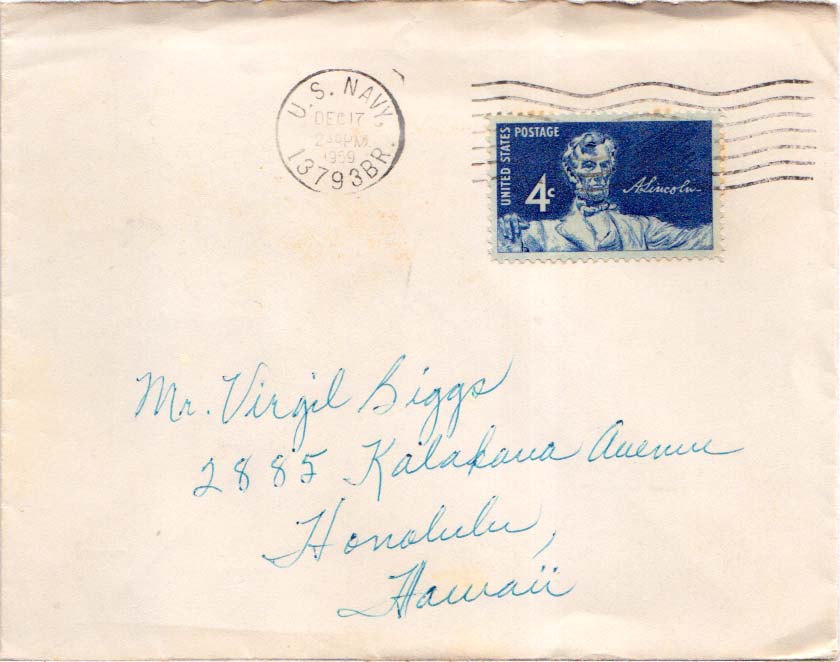 U.S. NAVY,
DEC 17
2 30 PM
1959
13793 BR.
UNITED STATES POSTAGE
4c
A. Lincoln
Mr. Virgil Biggs
2885 Kalakaua Avenue
Honolulu,
Hawaii